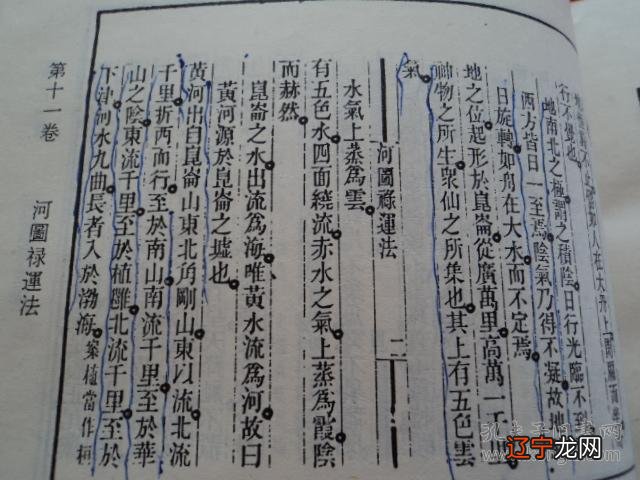 行不覺也
地南北之極謂之積陰日行光臨不至
西方皆日一至焉陰氣乃得不凝故地
日旋轉如舟在大水而不定焉
地之位起形於崑崙從廣萬里高萬一千
神物之所生衆仙之所集也其上有五色雲
氣
河圖祿運法
二
水氣上蒸爲雲
有五色水四面繞流赤水之氣上蒸爲霞陰
而赫然
崑崙之水出流爲海唯黃水流爲河故曰
黃河源於崑崙之墟也
黃河出自崑崙山東北角剛山東以流北流
千里折西而行至於南山南流千里至於華
山之陰東流千里至於植雝北流千里至於
下津河水九曲長者入於渤海案植當作桓
第十一卷
河圖祿運法
辽宁龙网